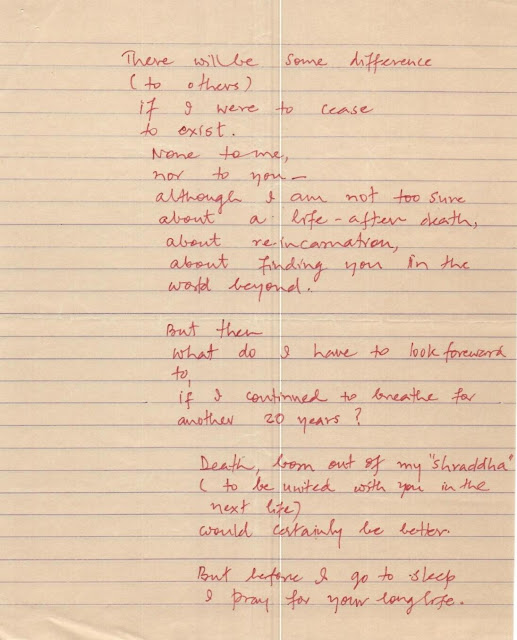 There will be some difference
(to others)
if I were to cease
to exist.
None to me,
nor to you—
although I am not too sure
about a life-after death,
about reincarnation,
about finding you in the
world beyond.
But then
what do I have to look foreward
to,
if I continued to breathe for
another 20 years?
Death, born out of my "shraddha"
(to be united with you in the
next life)
would certainly be better.
But before I go to sleep
I pray for your long life.